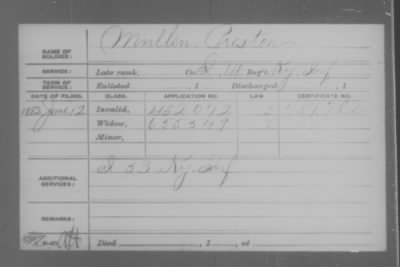 NAME OF SOLDIER: Mullen, Preston
SERVICE: Late rank, Co. I, Reg't Ky. Inf
TERM OF SERVICE: Enlisted , 1 Discharged , 1
DATE OF FILING. CLASS. APPLICATION NO. LAW. CERTIFICATE NO.
1882 June 12 Invalid, 452072
Widow, 655549
Minor,
ADDITIONAL SERVICES: I 53 Ky. Inf
REMARKS:
Died , 1 , at